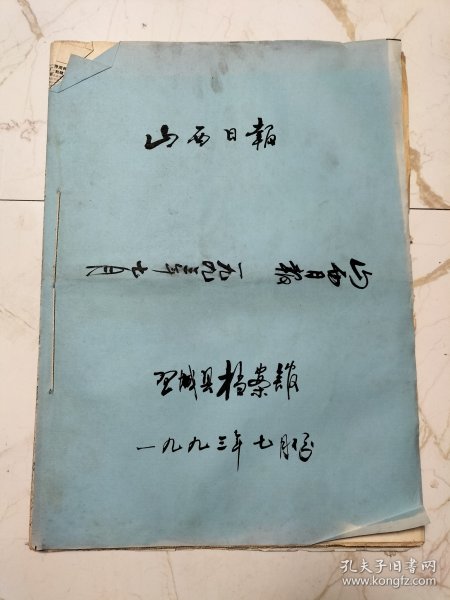 山西日報
山西日报 一九九三年七月
城县档案馆
一九九三年七月份
孔夫子旧书网
www.kongfz.com